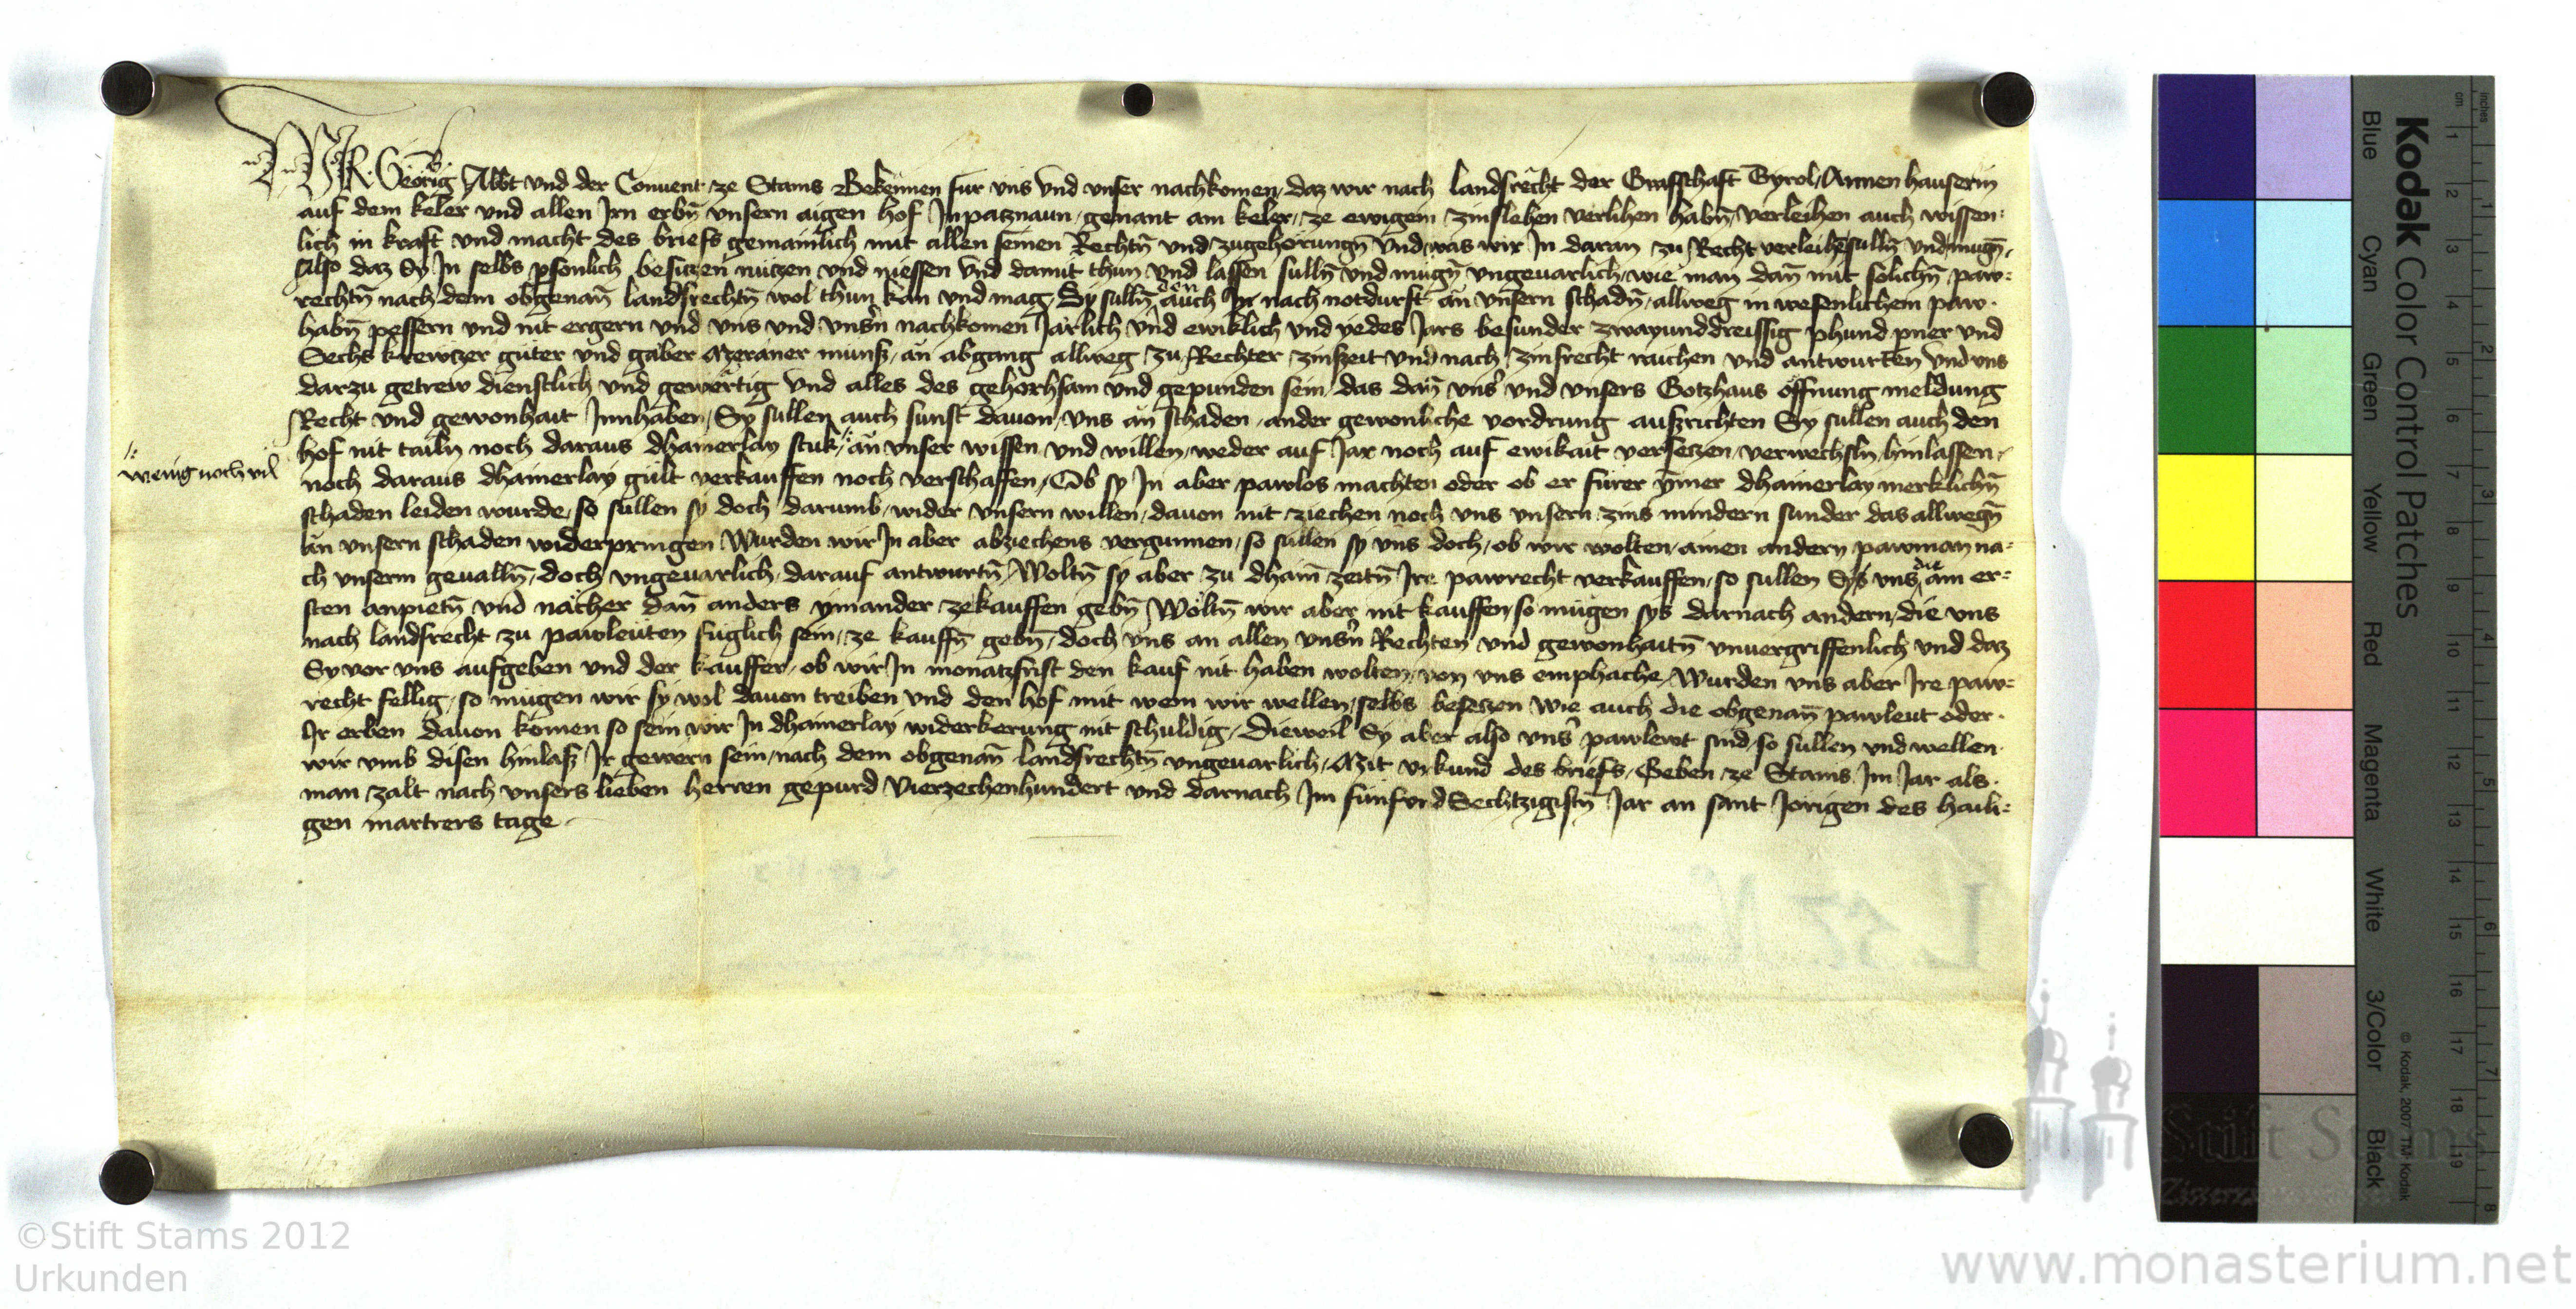 WIR Georig Abbt vnd der Conuent ze Stams Bekennen fur vns vnd vnser nachkomen, daz wir nach landsrecht der Grafschaft Tyrol, Annen hauserin
auf dem keler vnd allen Irn erbn̄ vnsern aigen hof Inpatznaun, genant am keler, ze ewigem zinslehen verlihen habn̄, verleihen auch wissen:
lich in kraft vnd macht des briefs gemainlich mit allen seinen Rechtn̄ vnd zugehorungn̄ vnd was wir In daran zu Recht verleihē sulln̄ vnd mugn̄,
Also daz Sy In selbs psonlich besitzen nutzen vnd niessen vnd damit thun vnd lassen sulln̄ vnd mugn̄ vngeuarlich, wie man dan̄ mit solichn̄ paw:
rechtn̄ nach dem obgenan̄ landsrechtn̄ wol thun kan vnd mag, Sy sulln̄ den auch nach notdurft an vnsern schadn̄, allweg in wesenlichem paw.
habn̄ pessern vnd nit ergern vnd vns vnd vnsn̄ nachkomen Jarlich vnd ewiklich vnd yedes Jars besunder zwayunddreissig phund pner vnd
Sechs krewtzer guter vnd gaber Meraner munß, an abgang allweg zu Rechter zinszeit vnd nach zinsrecht raichen vnd antwurten vnd vns
darzu getrew dienstlich vnd gewertig vnd alles des gehorhsam vnd gepunden sein, das dan̄ vns vnd vnsers Gotzhaus offnung meldung
Recht vnd gewonhait Innhaben, Sy sullen auch sunst dauon, vns an schaden, ander gewonliche vordrung außrichten Sy sullen auch den
hof nit tailn noch daraus dhainerlay stuk, an vnser wissen vnd willen, weder auf Jar noch auf ewikait versetzen, verwechsln, hinlassen,
wenig noch vil
noch daraus dhainerlay gult verkauffen noch verschaffen, Ob sy In aber pawlos machten oder ob er furer ymer dhainerlay merklichn̄
schaden leiden wurde, so sullen sy doch darumb, wider vnsern willen, dauon nit ziechen noch vns vnsern zins mindern sunder das allwegn̄
an vnsern schaden widerpringen Wurden wir In aber abziechens vergunnen, so sullen sy vns doch, ob wir wolten, ainen andern pawman na:
ch vnserm geualln̄, doch vngeuarlich, darauf antwurtn̄, Woltn̄ sy aber zu dhain̄ zeitn̄ Ire pawrecht verkauffen, so sullen Sys vns die am er:
sten anpietn̄ vnd nacher dan̄ anders ymander zekauffen gebn̄, Woltn̄ wir aber nit kauffen, so mugen sys darnach andern, die vns
nach landsrecht zu pawleuten fuglich sein, ze kauffn̄ gebn̄, doch vns an allen vnsn̄ Rechten vnd gewonhaitn̄ vnuergriffenlich vnd daz
Sy vor vns aufgeben vnd der kauffer, ob wir In monatzfrist den kauf nit haben wolten, von vns emphache, Wurden vns aber Ire paw:
recht fellig, so mugen wir sy wol dauon treiben vnd den hof mit wem wir wellen, selbs besetzen wie auch die obgenan̄ pawleut oder.
Ir erben dauon komen so sein wir In dhainerlay widerkerung nit schuldig, Dieweil Sy aber also vns pawlewt sind, so sullen vnd wellen
wir vmb disen hinlaß Ir gewern sein, nach dem obgenan̄ landsrechtn̄ vngeuarlich, Mit vrkund des briefs, Geben ze Stams Im Jar als.
man zalt nach vnsers lieben herren gepurd vierzechenhundert vnd darnach Im funfvnd Sechtzigistn̄ Jar an sant Jorigen des haili:
gen martrers tage
Kodak Color Control Patches
Blue Cyan Green Yellow Red Magenta White 3/Color Black
© Kodak, 2007 TM: Kodak
inches 1 2 3 4 5 6 7 8
cm 1 2 3 4 5 6 7 8 9 10 11 12 13 14 15 16 17 18 19
Stift Stams
©Stift Stams 2012
Urkunden
www.monasterium.net